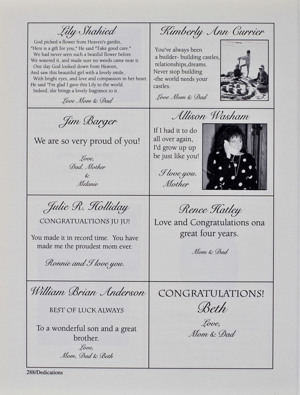 Lily Shahied
God picked a flower from Heaven's garden,
"Here is a gift for you," He said "Take good care."
We had never seen such a beatiful flower before
We watered it, and made sure no weeds came near it
One day God looked down from Heaven,
And saw this beautiful girl with a lovely smile,
With bright eyes, and love and compassion in her heart
He said "I'm glad I gave this Lily to the world
Indeed, she brings a lovely fragrence to it.
Love Mom & Dad
Kimberly Ann Currier
You've always been
a builder- building castles,
relationships,dreams.
Never stop building
-the world needs your
castles.
Love Mom & Dad
Jim Barger
We are so very proud of you!
Love,
Dad, Mother
&
Melanie
Allison Washam
If I had it to do
all over again,
I'd grow up up
be just like you!
I love you,
Mother
Julie R. Holliday
CONGRATUALTIONS JU JU!
You made it in record time. You have
made me the proudest mom ever.
Ronnie and I love you.
Renee Hatley
Love and Congratulations ona
great four years.
Mom & Dad
William Brian Anderson
BEST OF LUCK ALWAYS
To a wonderful son and a great
brother.
Love,
Mom, Dad & Beth
CONGRATULATIONS!
Beth
Love,
Mom & Dad
288/Dedications